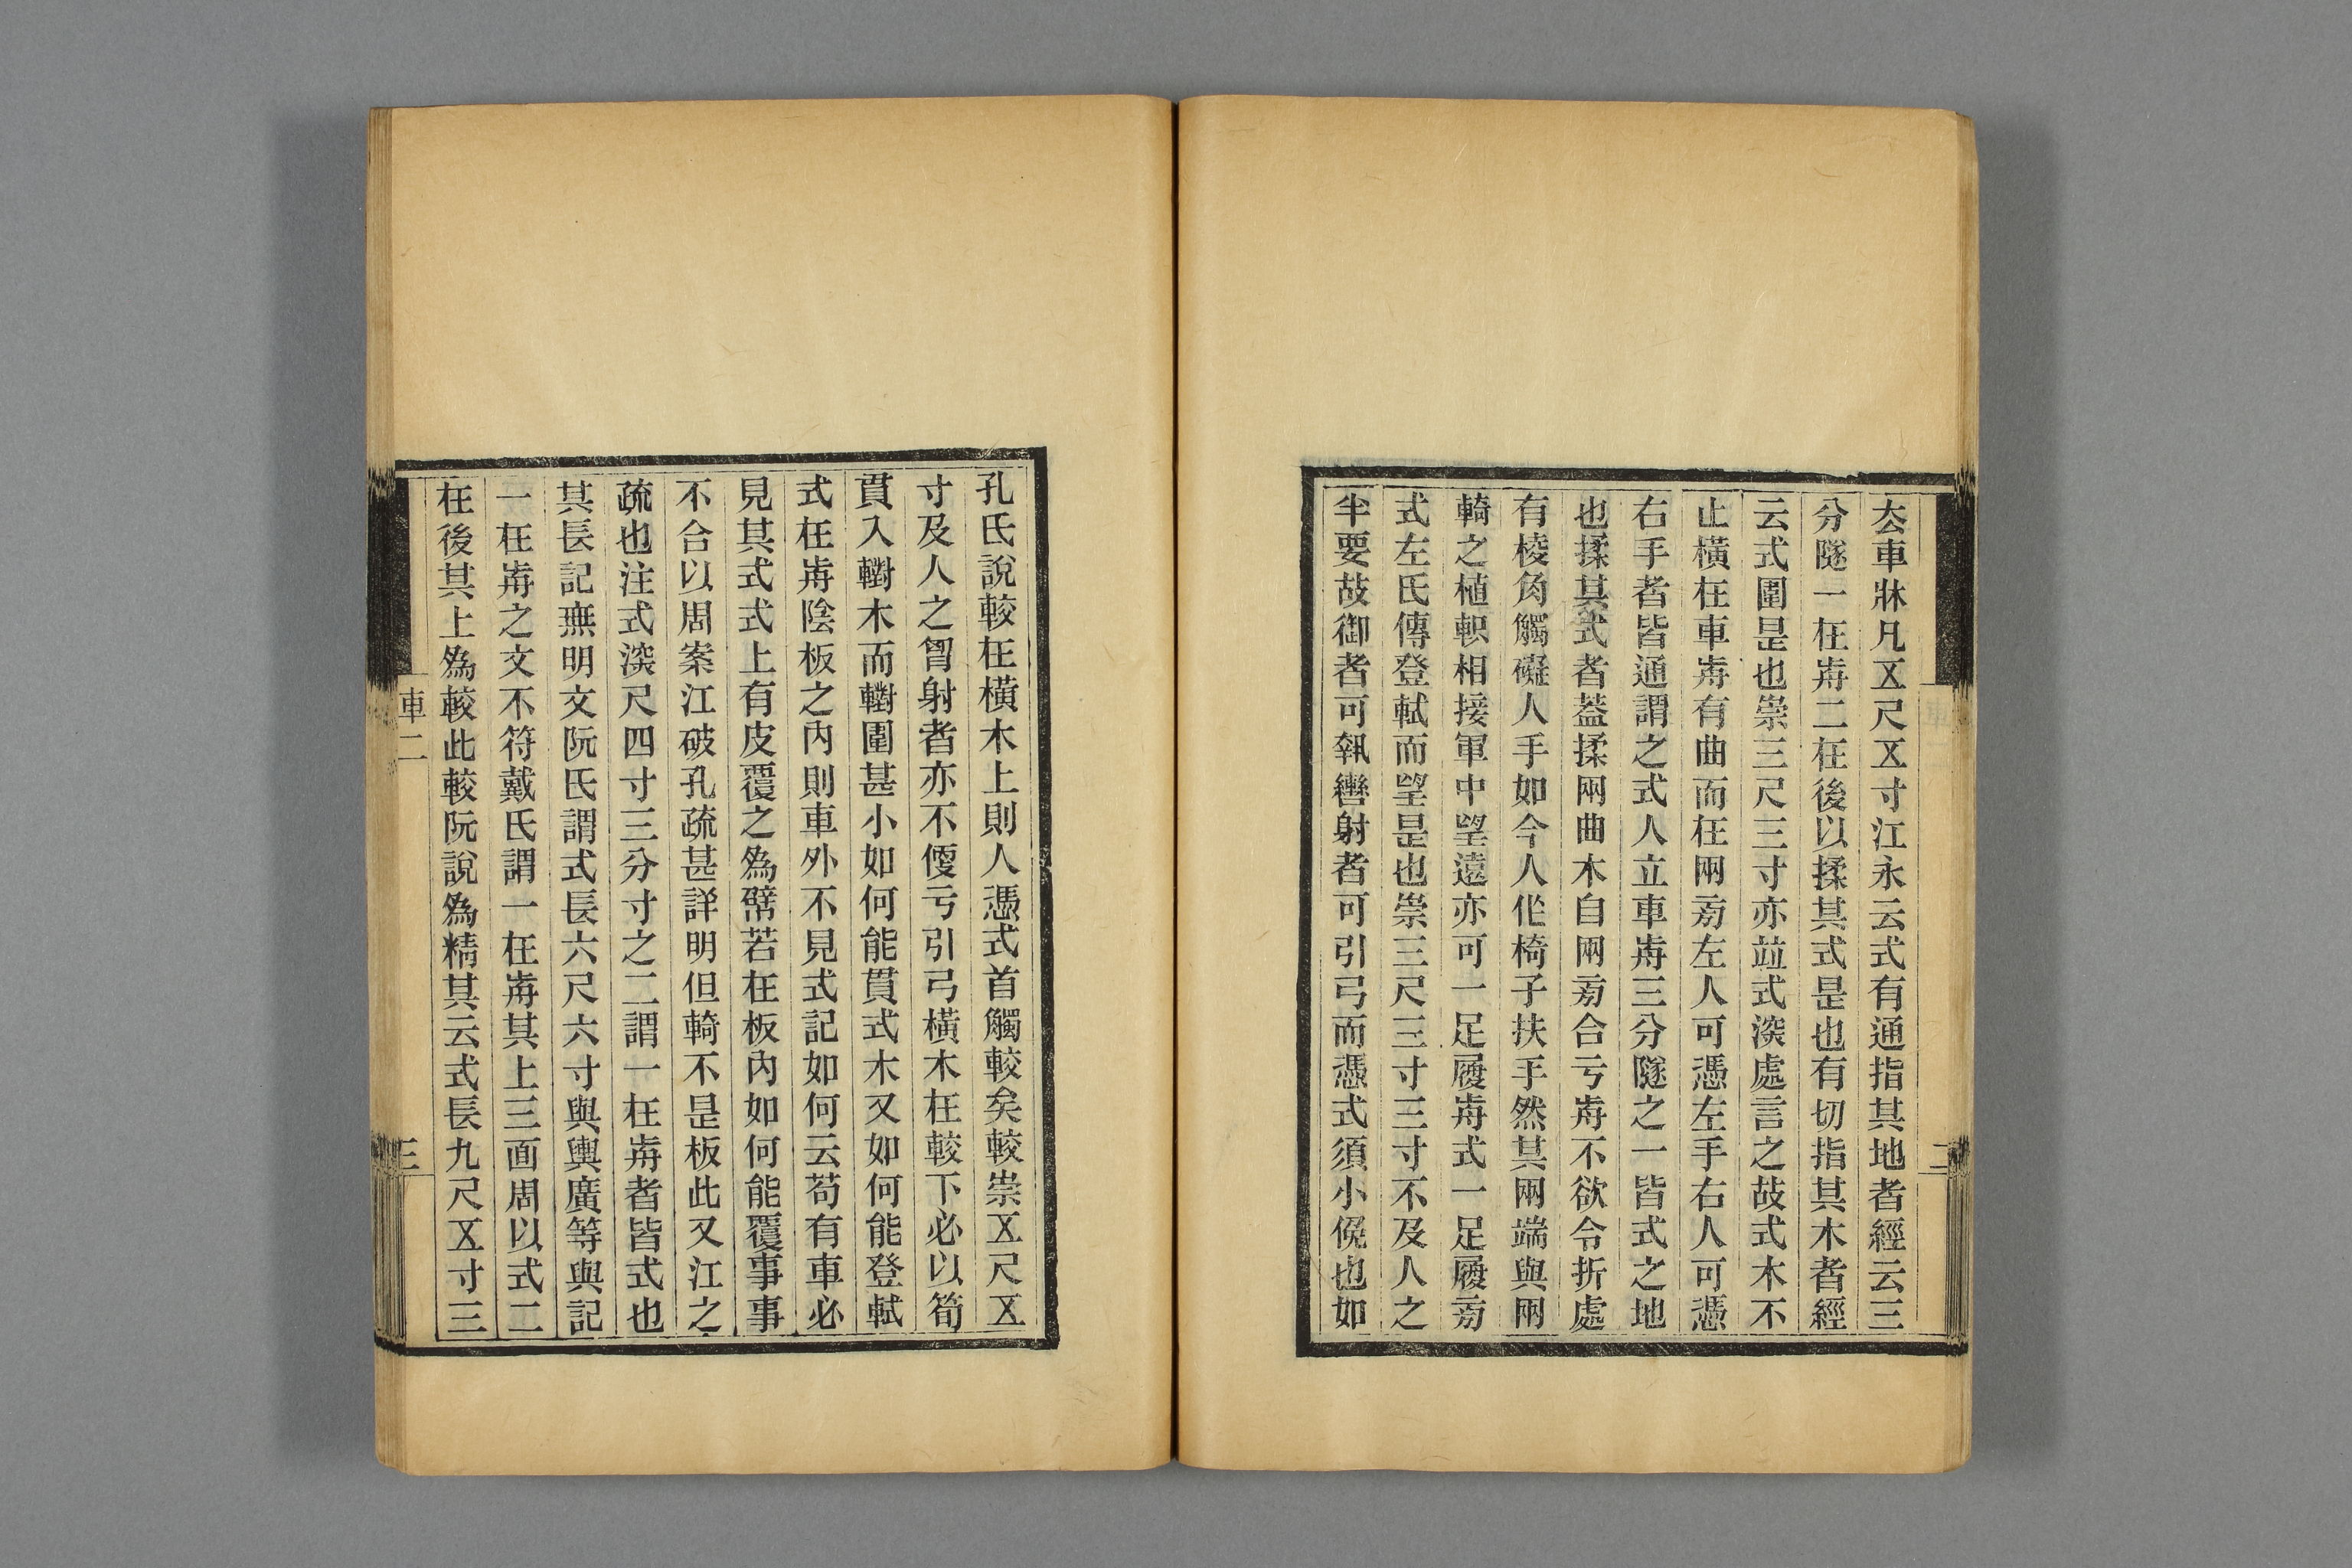 厺車牀凡㐅尺㐅寸江永云式有通指其地者經云三
分隧一在歬二在後以揉其式是也有切指其木者經
云式圍是也崇三尺三寸亦竝式湥處言之故式木不
止橫在車歬有曲而在兩㫄左人可憑左手右人可憑
右手者皆通謂之式人立車歬三分隧之一皆式之地
也揉其式者蓋揉兩曲木自兩㫄合亏歬不欲令折處
有棱角觸礙人手如今人㘴椅子扶手然其兩端與兩
輢之植軹相接軍中望遠亦可一足履歬式一足履㫄
式左氏傳登軾而望是也崇三尺三寸三寸不及人之
半要故御者可執轡射者可引弓而憑式須小俛也如
孔氏說較在橫木上則人憑式首觸較矣較崇㐅尺㐅
寸及人之胷射者亦不便亏引弓橫木在較下必以筍
貫入轛木而轛圍甚小如何能貫式木又如何能登軾
式在歬陰板之內則車外不見式記如何云苟有車必
見其式式上有皮覆之爲幦若在板內如何能覆事事
不合以周案江破孔疏甚詳明但輢不是板此又江之
疏也注式湥尺四寸三分寸之二謂一在歬者皆式也
其長記無明文阮氏謂式長六尺六寸與輿廣等與記
一在歬之文不符戴氏謂一在歬其上三面周以式二
在後其上爲較此較阮說爲精其云式長九尺㐅寸三
車二
三
二